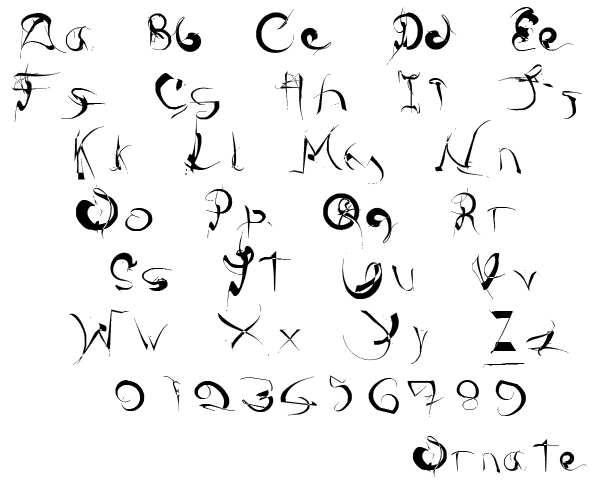 Aa Bb Cc Dd Ee
Ff Gg Hh Ii Jj
Kk Ll Mm Nn
Oo Pp Qq Rr
Ss Tt Uu Vv
Ww Xx Yy Zz
0 1 2 3 4 5 6 7 8 9
Ornate